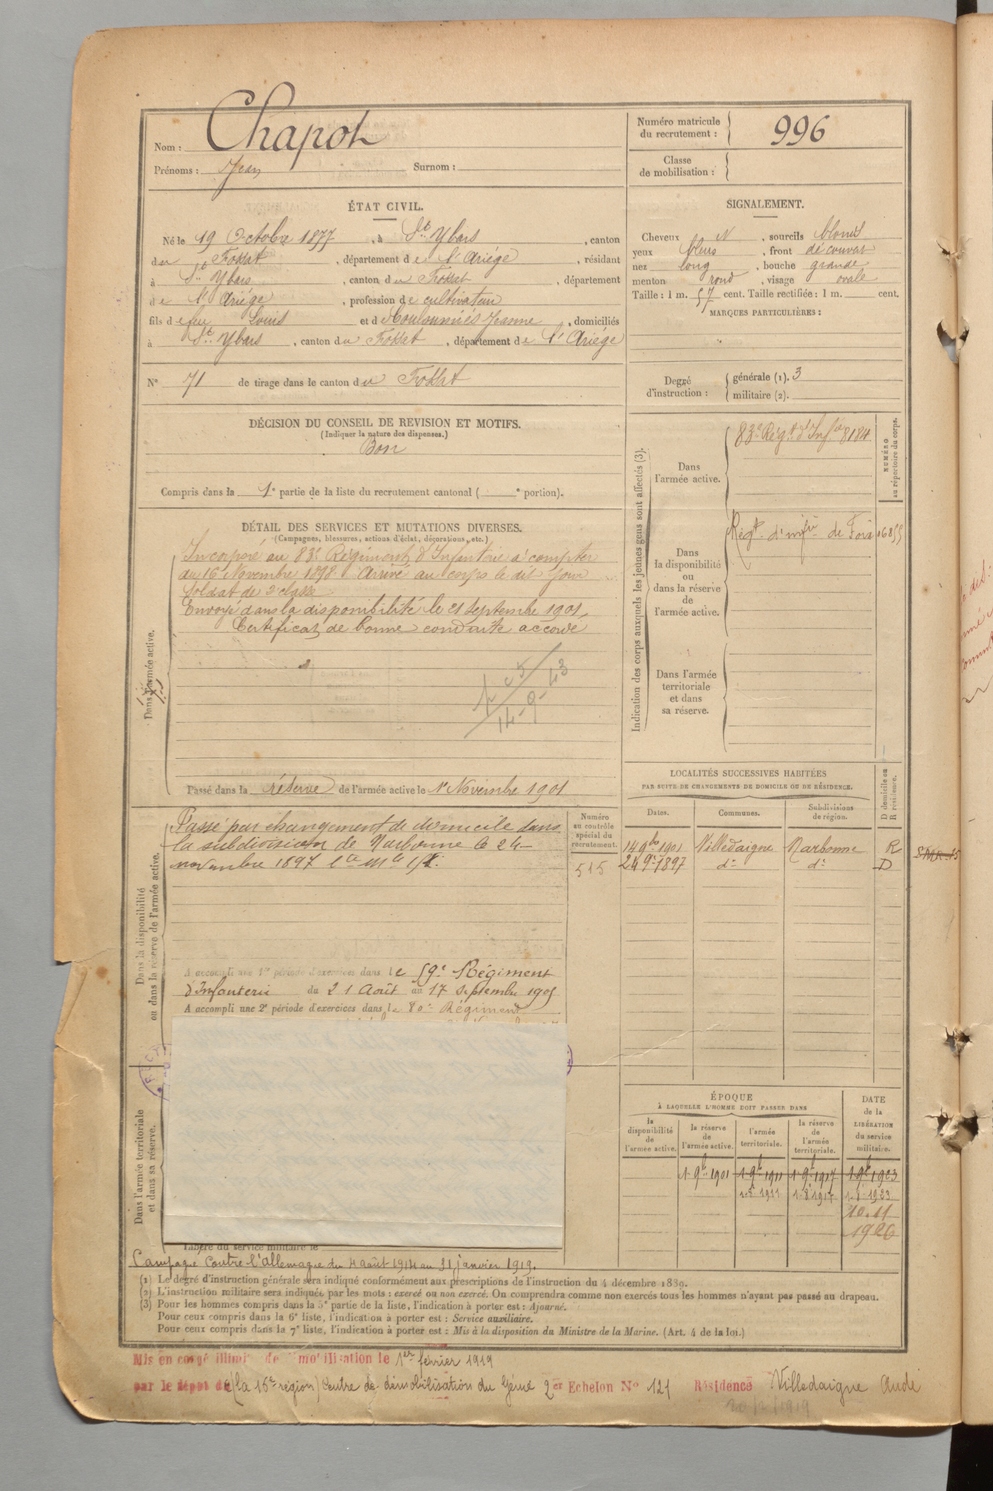 Nom : Chapot
Prénoms : Jean Surnom :
Numéro matricule du recrutement : 996
Classe de mobilisation :
ÉTAT CIVIL.
Né le 19 Octobre 1877, à St Ybars, canton
du Fossat, département de l'Ariège, résidant
à St Ybars, canton du Fossat, département
de l'Ariège, profession de cultivateur
fils de feu Louis et de Jeanne, domiciliés
à St Ybars, canton du Fossat, département de l'Ariège
N° 71 de tirage dans le canton du Fossat
SIGNALEMENT.
Cheveux N, sourcils blonds
yeux bleus, front découvert
nez long, bouche grande
menton rond, visage ovale
Taille : 1 m. 57 cent. Taille rectifiée : 1 m. cent.
MARQUES PARTICULIÈRES :
Degré d'instruction : générale (1). 3
militaire (2).
DÉCISION DU CONSEIL DE REVISION ET MOTIFS.
(Indiquer la nature des dispenses.)
Bon
Compris dans la 1e partie de la liste du recrutement cantonal ( e portion).
DÉTAIL DES SERVICES ET MUTATIONS DIVERSES.
(Campagnes, blessures, actions d'éclat, décorations, etc.)
Dans l'armée active.
Incorporé au 83e Régiment d'Infanterie à compter
du 16 Novembre 1898 Arrivé au corps le dit jour
soldat de 2e classe
Envoyé dans la disponibilité le 21 septembre 1901
Certificat de bonne conduite accordé
14-9-
Passé dans la réserve de l'armée active le 1er Novembre 1901
Indication des corps auxquels les jeunes gens sont affectés (3).
NUMÉRO au répertoire du corps.
Dans l'armée active.
83e Régt d'Infie 8184
Dans la disponibilité ou dans la réserve de l'armée active.
Régt d'infie de Foix 16855
Dans l'armée territoriale et dans sa réserve.
LOCALITÉS SUCCESSIVES HABITÉES
PAR SUITE DE CHANGEMENTS DE DOMICILE OU DE RÉSIDENCE.
D domicile ou R résidence.
Dates. Communes. Subdivisions de région.
14 9bre 1901 Villedaigne Narbonne R
24 9e 1897 do do D
Dans la disponibilité ou dans la réserve de l'armée active.
Numéro au contrôle spécial du recrutement.
515
Passé par changement de domicile dans
la subdivision de Narbonne le 24
novembre 1897
A accompli une 1re période d'exercices dans le 59e Régiment
d'Infanterie du 21 Août au 17 septembre 1905
A accompli une 2e période d'exercices dans le 80e Régiment
Dans l'armée territoriale et dans sa réserve.
ÉPOQUE
À LAQUELLE L'HOMME DOIT PASSER DANS
la disponibilité de l'armée active.
la réserve de l'armée active.
l'armée territoriale.
la réserve de l'armée territoriale.
DATE de la LIBÉRATION du service militaire.
1 9b 1901 1 9b 1911 1 9b 1917 1 9b 1923
10.11
1926
Libéré du service militaire le
Campagne contre l'Allemagne du 4 août 1914 au 31 janvier 1919.
(1) Le degré d'instruction générale sera indiqué conformément aux prescriptions de l'instruction du 4 décembre 1889.
(2) L'instruction militaire sera indiquée par les mots : exercé ou non exercé. On comprendra comme non exercés tous les hommes n'ayant pas passé au drapeau.
(3) Pour les hommes compris dans la 5e partie de la liste, l'indication à porter est : Ajourné.
Pour ceux compris dans la 6e liste, l'indication à porter est : Service auxiliaire.
Pour ceux compris dans la 7e liste, l'indication à porter est : Mis à la disposition du Ministre de la Marine. (Art. 4 de la loi.)
Mis en congé illimité de démobilisation le 1er février 1919
par le dépôt de (la 16e région) Centre de démobilisation du Génie 2er Echelon N° 121 Résidence Villedaigne Aude